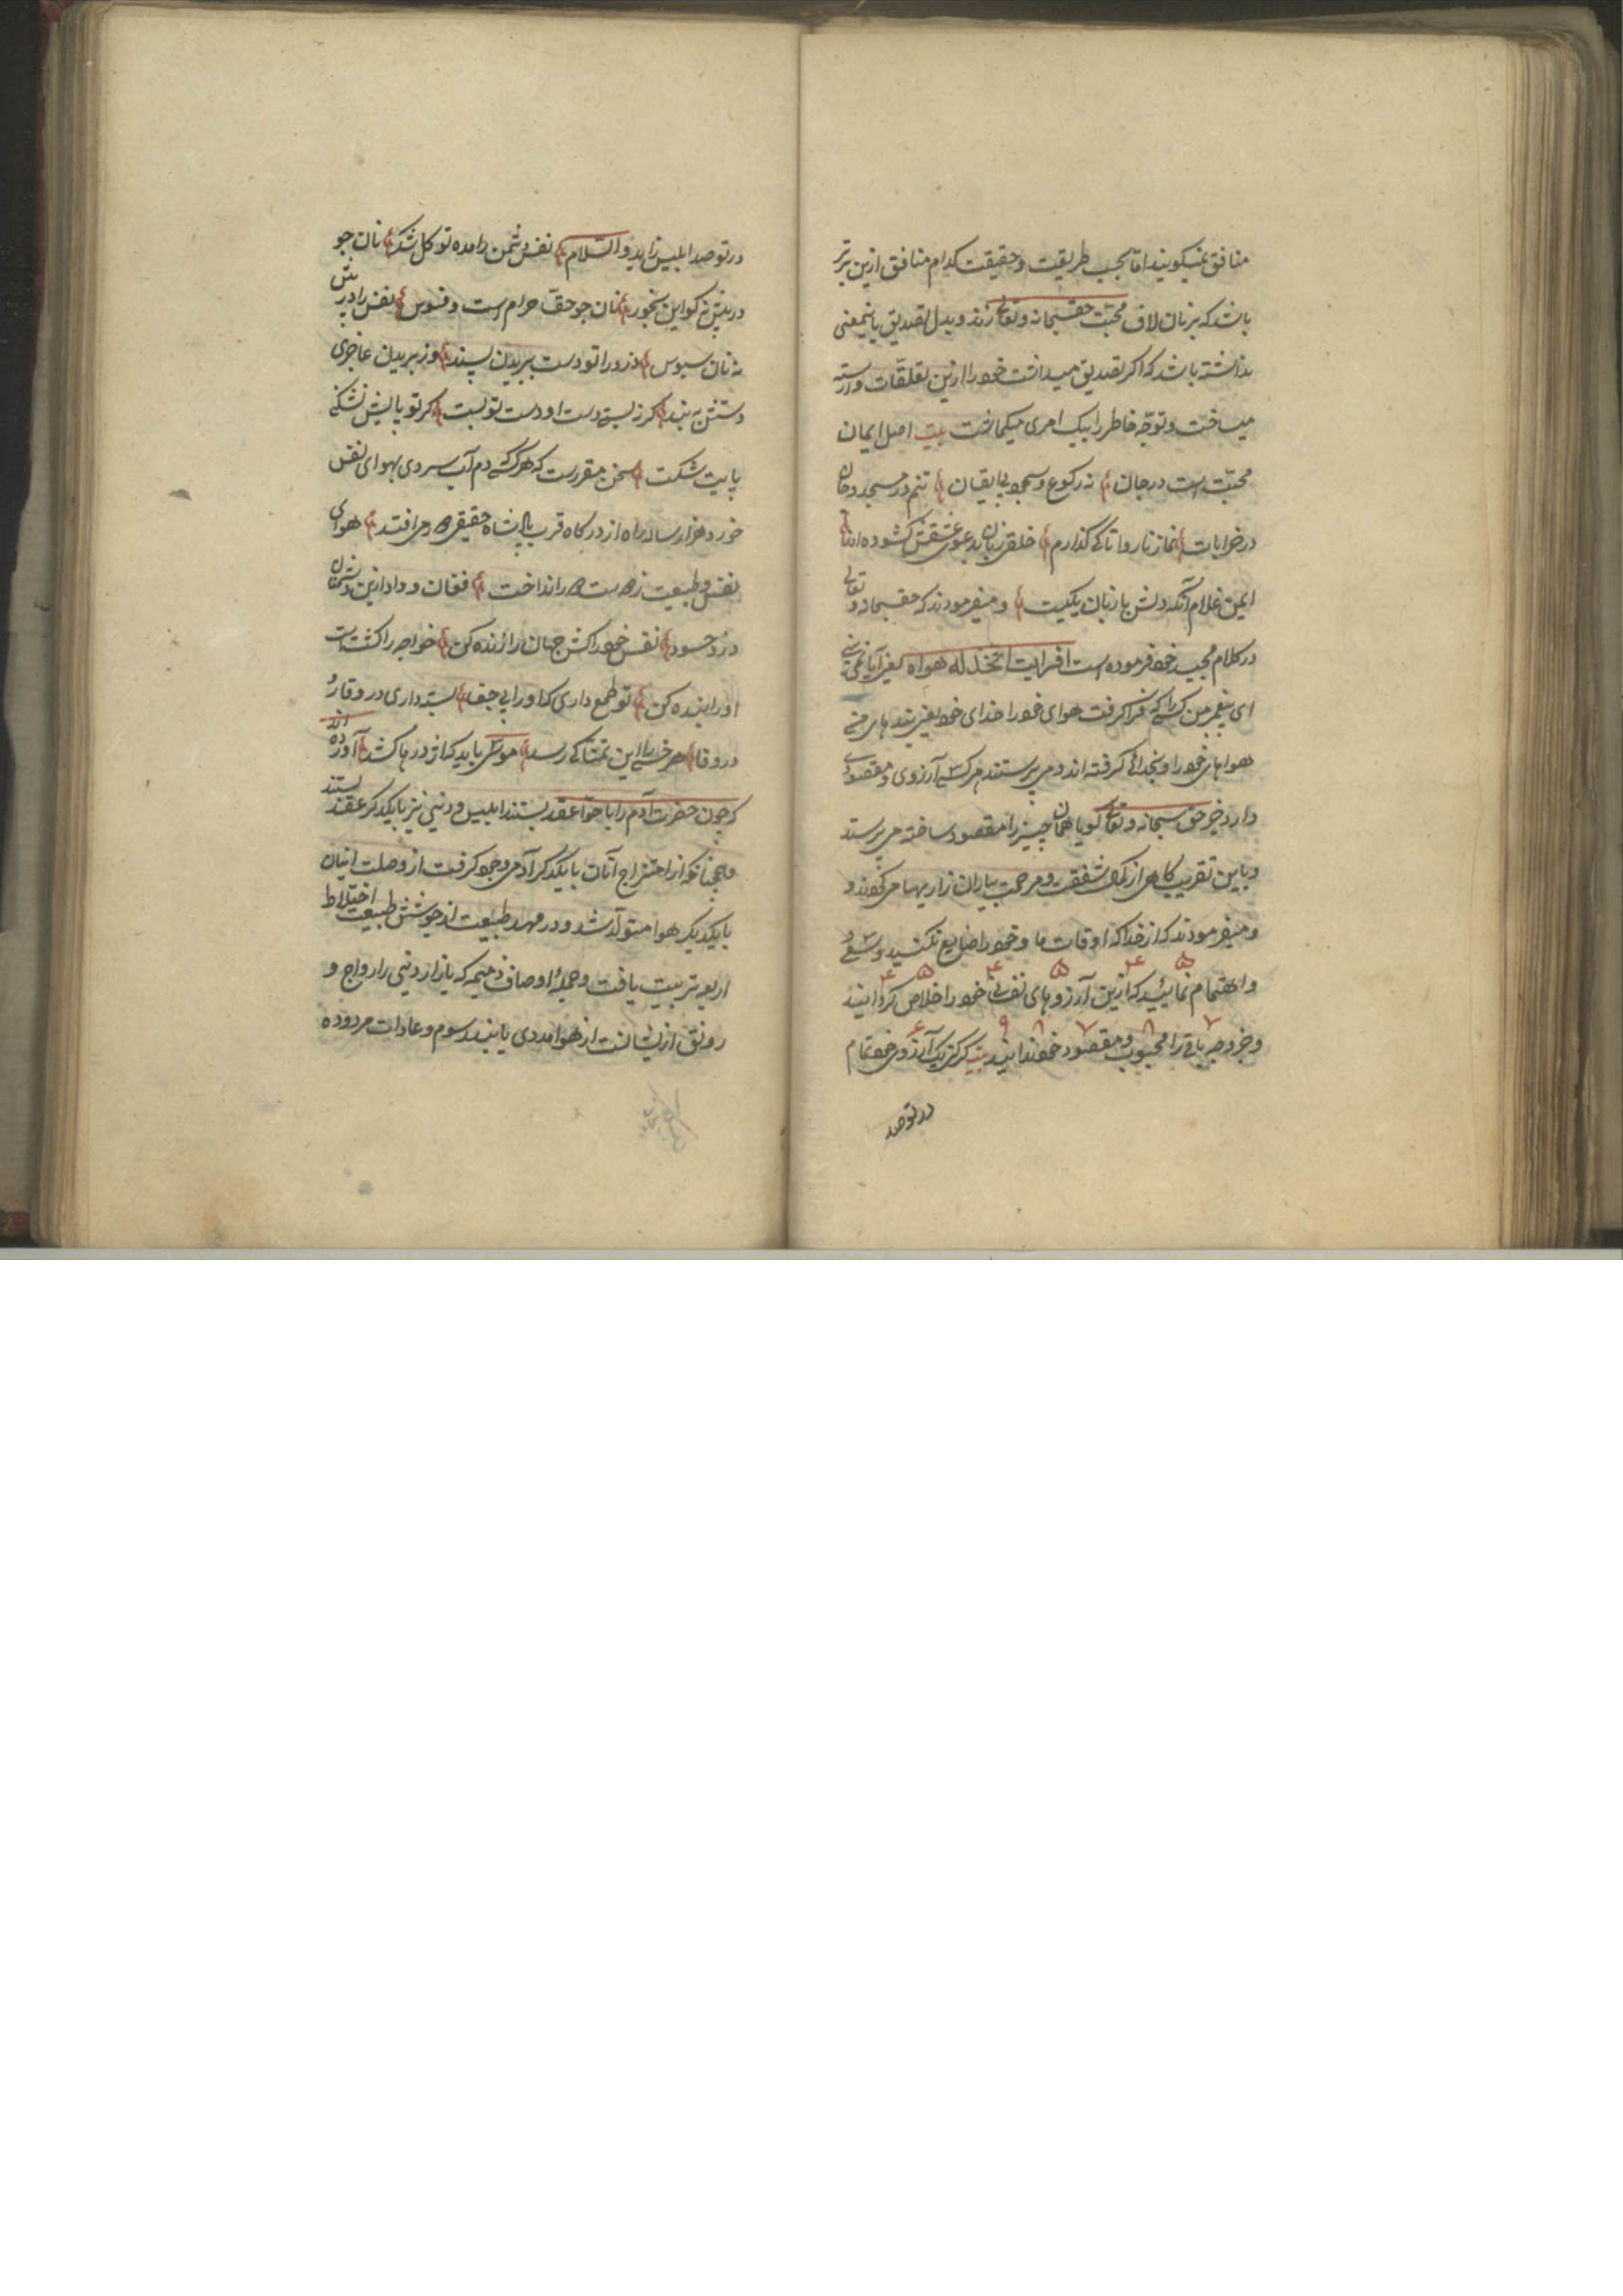 منافق نمیکویند اما بحسب طریقیت و حقیقت کدام منافق ازین برتر
باشد که بزبان لاف محبت حقسبحانه وتعالی زند و بدل تصدیق باینمعنی
نداشته باشد که اکر تصدیق میداشت خود را ازین تعلقات وارسته
میساخت و توجه خاطر را بیک امری میکماشت بیت اصل ایمان
محبتست در جان نه رکوع و سجود بی ایقان تنم در مسجد و جان
در خرابات نماز ناروا تا کی کذارم خلقی زبان بدعوی عشقش کشوده اند
ای من غلام آنکه دلش با زبان یکیست و میفرمودند که حقسبحانه و تعالی
در کلام مجید خود فرموده است افرایت اتخذ له هواه یعنی آیا نمی بینی
ای پیغمبر من کسی را که فرا کرفت هوای خود را خدای خود یعنی بندهای من
هواهای خود را بخدائی کرفته اند و می پرستند هر کسی آرزوی و مقصودی
دارد خیر حق سبحانه وتعالی کویا همان چیز را مقصود ساخته می پرستد
و باین تقریب کاهی از کمال شفقت و مرحمت بیاران زاریها می کردند و
و میفرمودند که از خدا که اوقات ما و خود را ضایع نکنید و سعی و
و اهتمام نمائید که ازین آرزوهای نفسانی خود را خلاص کردانید
و جز وجه باقی را محبوب و مقصود خود ندانید بیت کر کنی یک آرزوی خود تمام
در تو صد
در تو صد ابلیس زاید والسلام نفس دشمن را مده تو کل شکر نان جو
در پیش نه کو این بخور نان جو حقا حرام است و فسوس نفس را در پیش
نه نان سبوس دزد را تو دست ببریدن پسند وز بریدن عاجزی
دستش به بند کر نه بندی دست او دست تو بست کر تو پایش نشکنی
پایت شکست سخن مقررست که هر که دم آب سردی بهوای نفس
خورد هزار ساله راه از درکاه قرب پادشاه حقیقی دور می افتد هوای
نفس و طبیعت ز دوست دور انداخت فغان و داد ازین دشمنان
دزد حسود نفس خود را کش جهان را زنده کن خواجه را کشتست
او را بنده کن تو طمع داری که او را بی جفا بسته داری در وقار و
در وفا هر خسی را این تمنا کی رسد موسی باید که اژدرها کشد آورده اند
که چون حضرت آدم را با حوا عقد بستند ابلیس و دنیی نیز با یکدکر عقد بستند
و همچنانکه از امتزاج آنان با یکدکر آدمی وجود کرفت از وصلت اینان
با یکدیکر هوا متولد شد و در مهد طبیعت از جوشش طبیعت اختلاط
اربعه تربیت یافت و جملهٔ اوصاف ذمیمه که بازار دنیی را رواج و
رونق ازیشانست از هوا مددی یابند رسوم و عادات مردوده